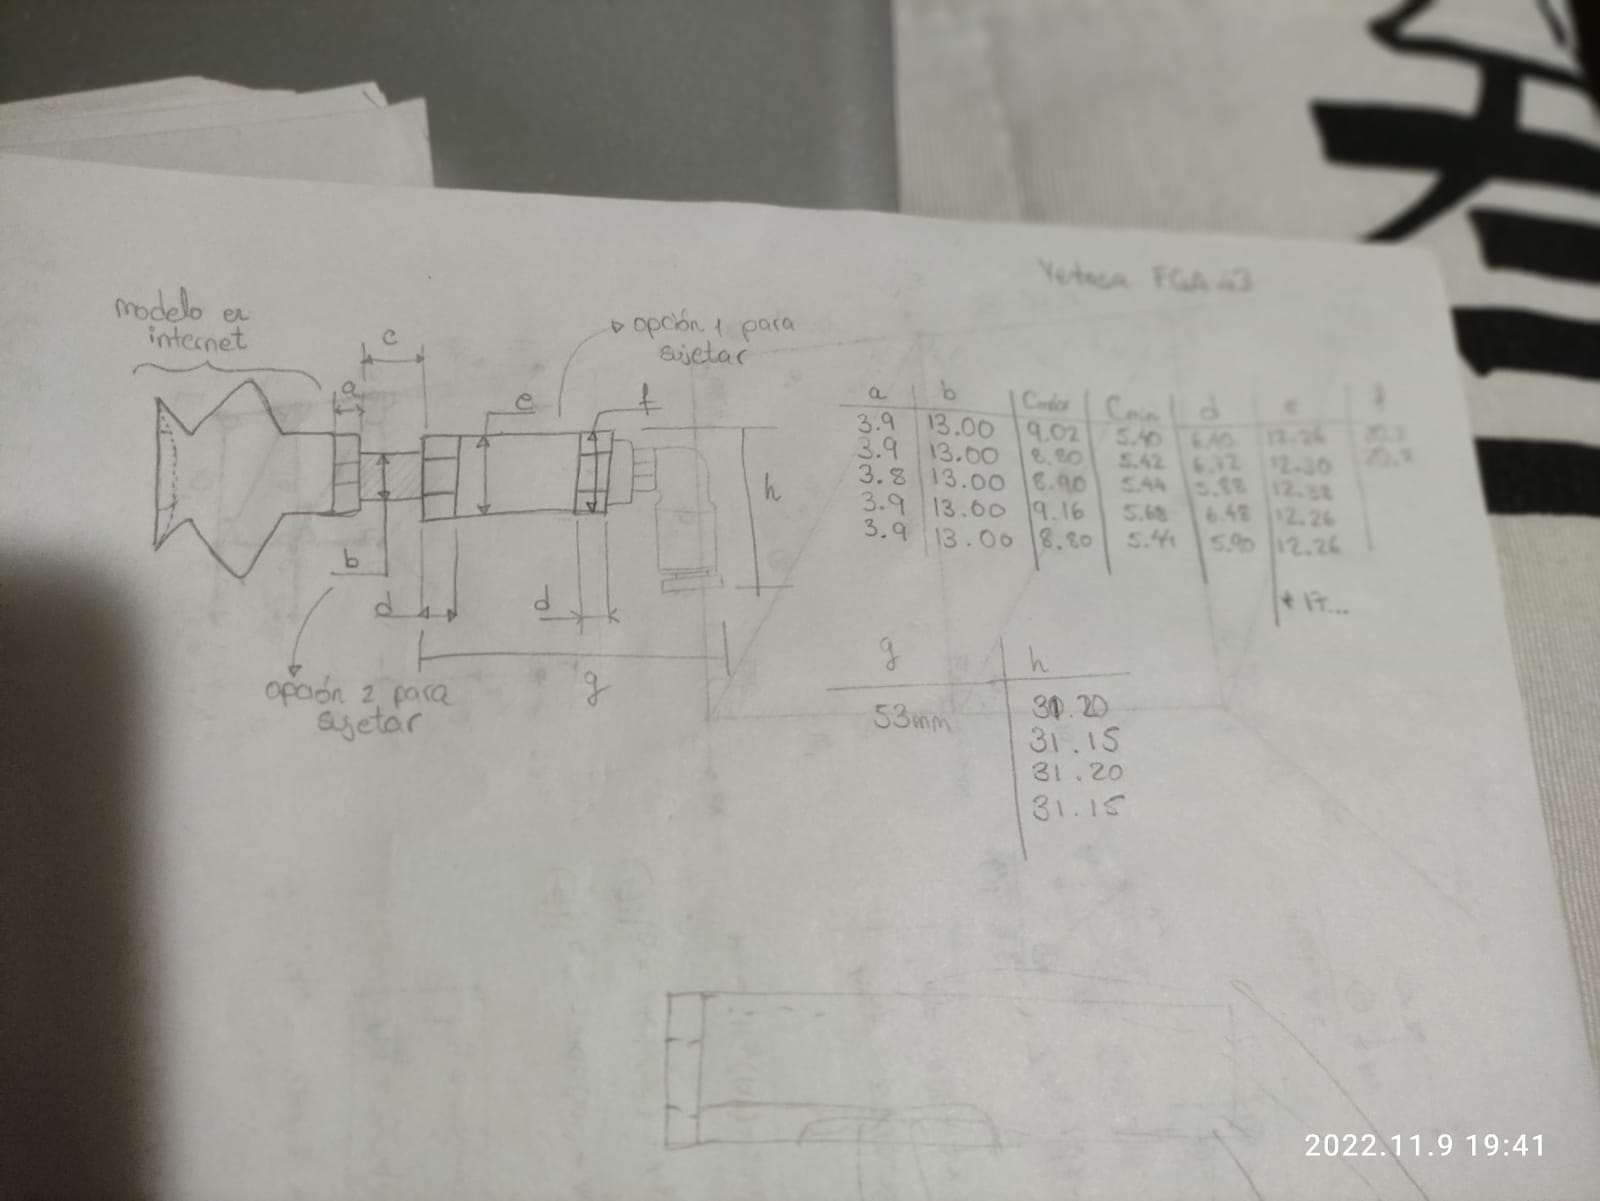 Ventosa FGA 43
modelo en
internet
c
a
opción 1 para
sujetar
e
f
h
b
d
d
g
opción 2 para
sujetar
a b Cmáx Cmin d e f
3.9 13.00 9.02 5.40 6.40 12.26
3.9 13.00 8.80 5.42 6.32 12.30
3.8 13.00 8.90 5.44 5.88 12.38
3.9 13.00 9.16 5.68 6.48 12.26
3.9 13.00 8.80 5.44 5.90 12.26
* 17...
g h
53mm 31.20
31.15
31.20
31.15
2022.11.9 19:41